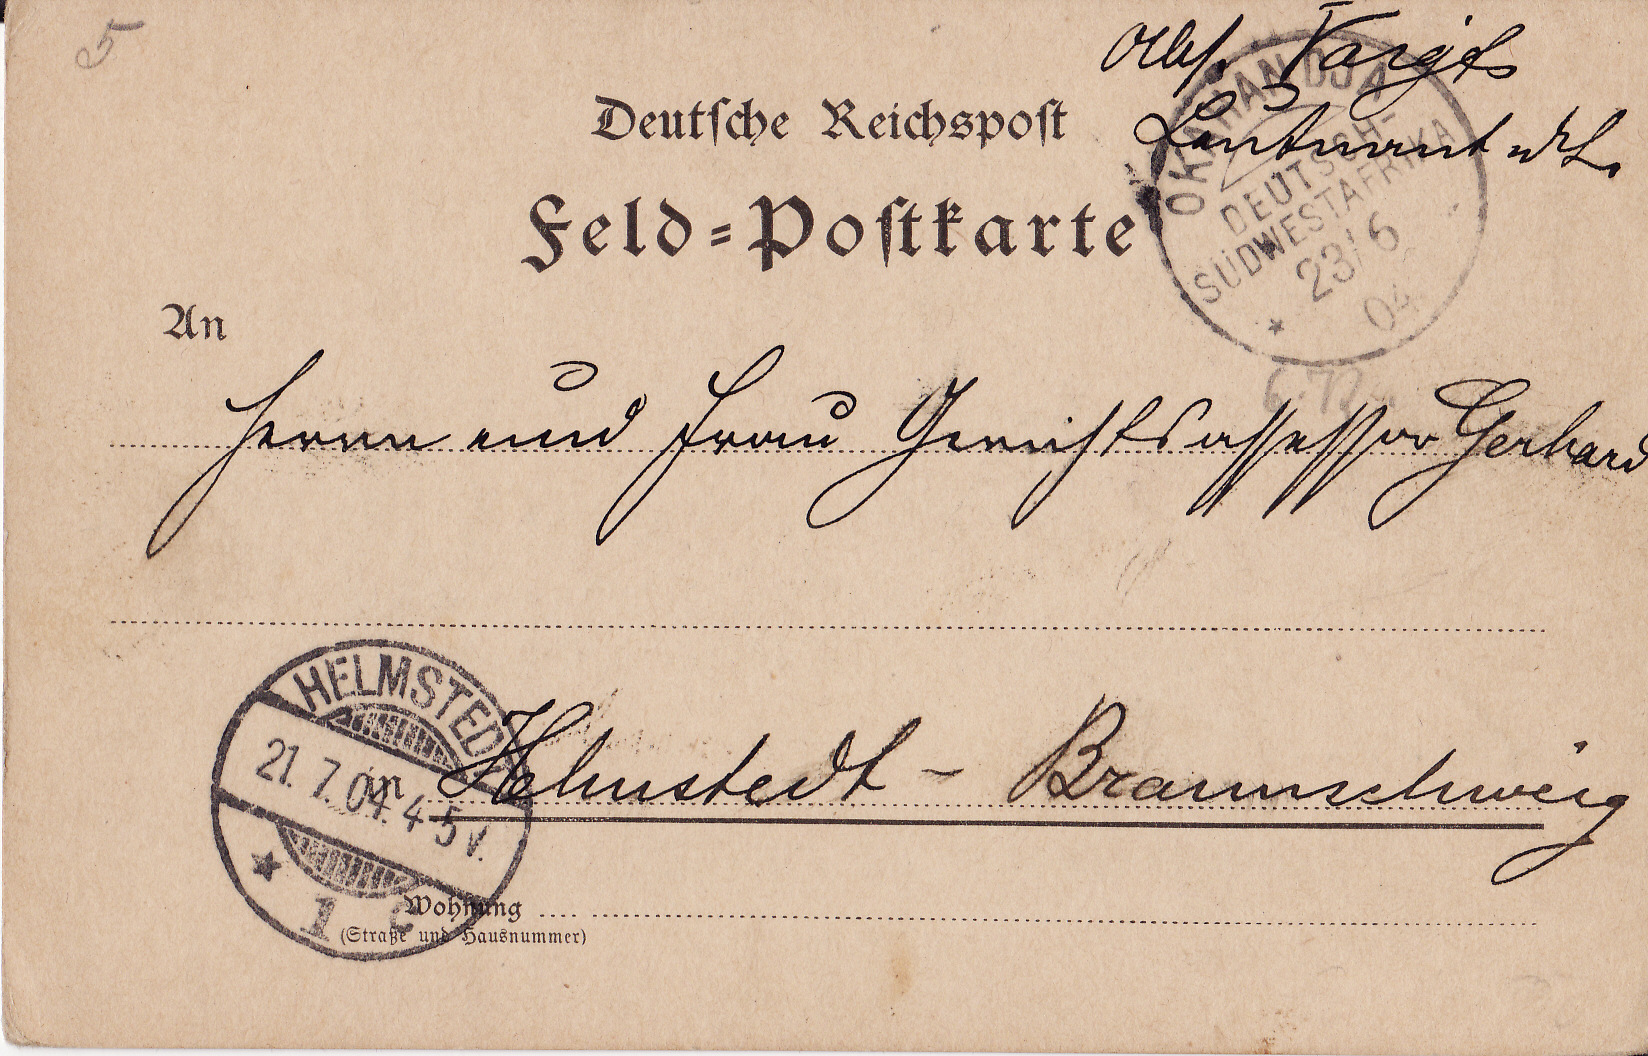 5
Abs. Voigts
Leutnant d. L.
Deutsche Reichspost
Feld-Postkarte
OKAHANDJA
DEUTSCH-
SÜDWESTAFRIKA
23/6
04
An
Herrn und Frau Gerichtsassessor Gerhard
HELMSTEDT
21. 7. 04. 4-5 V.
* 1 c
in Helmstedt - Braunschweig
Wohnung
(Straße und Hausnummer)